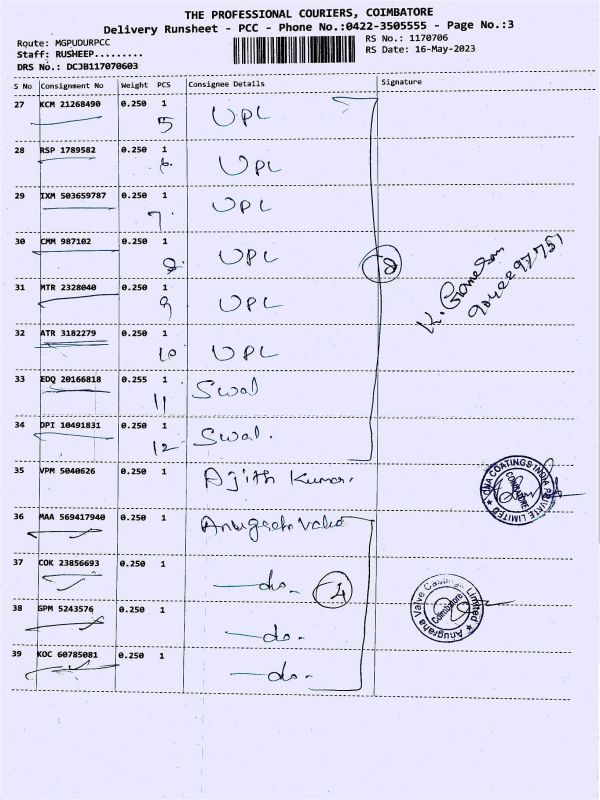 THE PROFESSIONAL COURIERS, COIMBATORE
Delivery Runsheet - PCC - Phone No.:0422-3505555 - Page No.:3
Route: MGPUDURPCC
RS No.: 1170706
Staff: RUSHEEP.........
RS Date: 16-May-2023
DRS No.: DCJB117070603
S No Consignment No Weight PCS Consignee Details Signature
27 KCM 21268490 0.250 1 UPL
5
28 RSP 1789582 0.250 1 UPL
6.
29 IXM 503659787 0.250 1 UPL
7.
30 CMM 987102 0.250 1 UPL
8.
8
31 MTR 2328040 0.250 1 UPL
9
32 ATR 3182279 0.250 1 UPL
10
33 EDQ 20166818 0.255 1 Swal
11
34 DPI 10491831 0.250 1 Swal.
12
35 VPM 5040626 0.250 1 Ajith Kumar.
CNA COATINGS INDIA PRIVATE LIMITED
COIMBATORE
36 MAA 569417940 0.250 1
37 COK 23856693 0.250 1 -do.
4
Anugraha Valve Castings Limited
Coimbatore
38 GPM 5243576 0.250 1 -do.
39 KOC 60785081 0.250 1 -do.